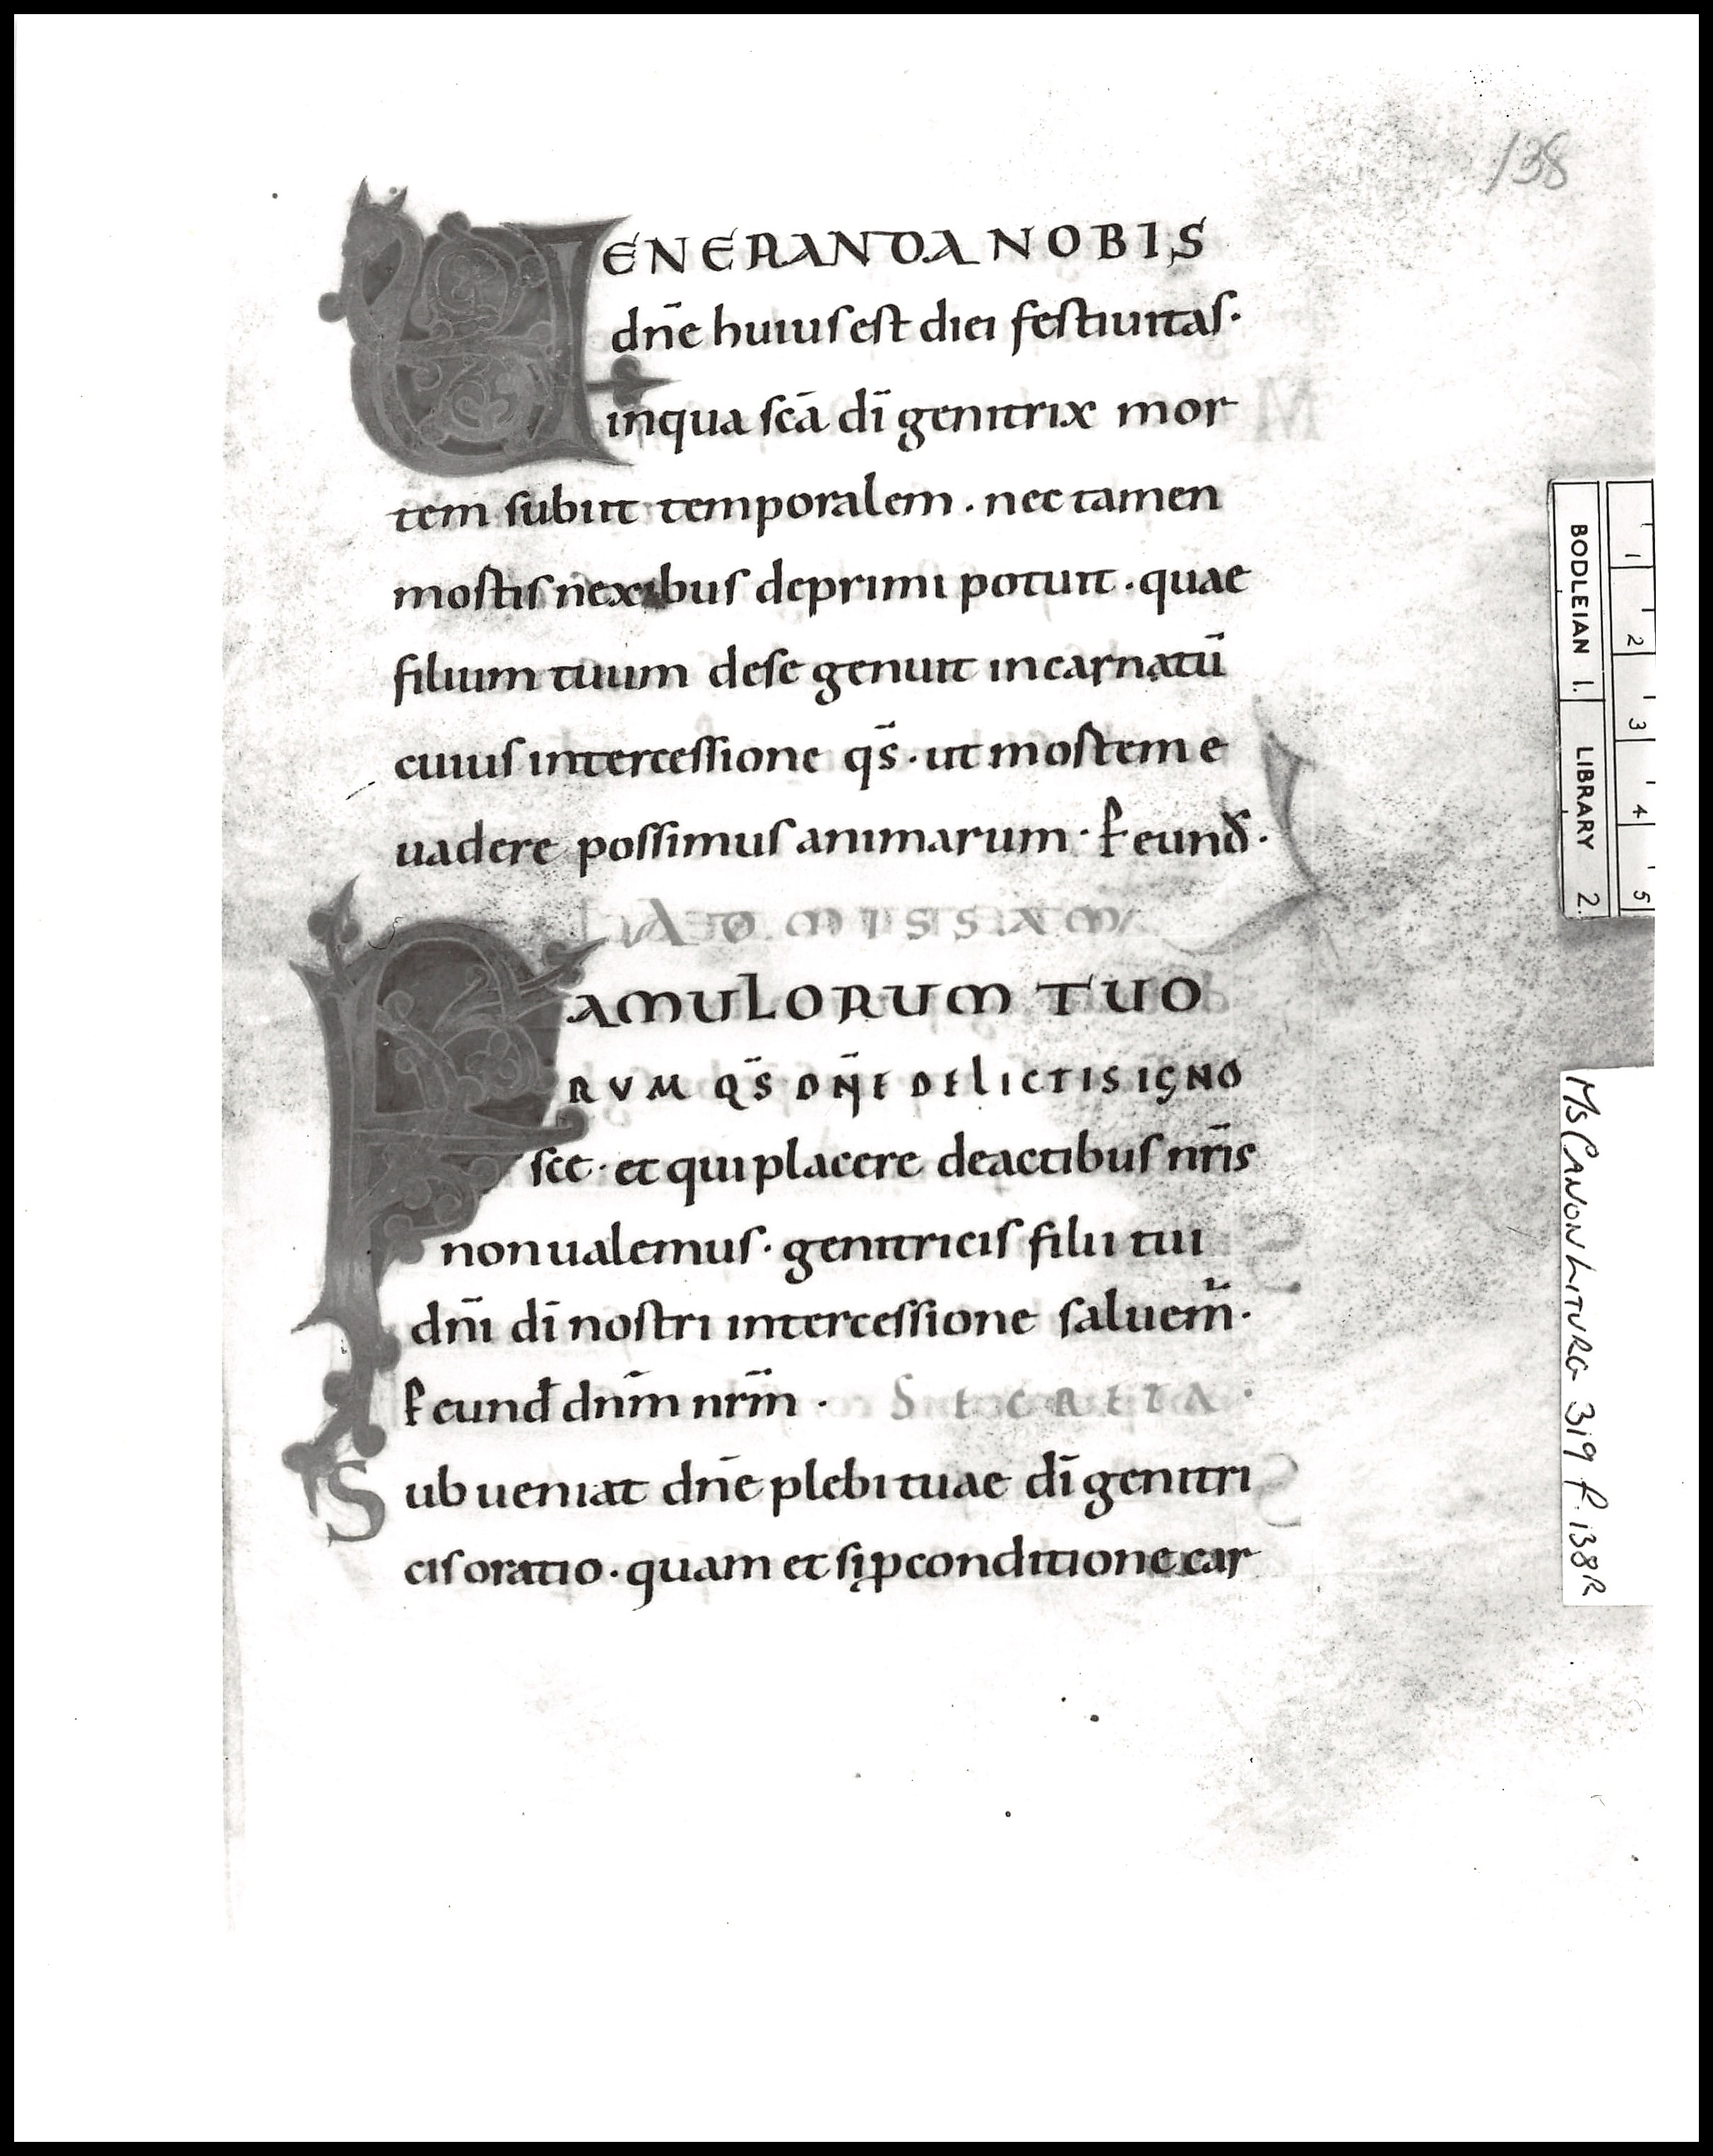 138
UENERANDA NOBIS
dn̄e huius est diei festiuitas·
inqua sc̄a dī genitrix mor
tem subiit temporalem · nec tamen
mostis nexibus deprimi potuit · quae
filium tuum dese genuit incarnatū
cuius intercessione qs̄ · ut mostem e
uadere possimus animarum · P̲ eund̄ ·
AD MISSAM
FAMULORUM TUO
RVM QS̄ DN̄E DELICTIS IGNO
sce · et qui placere deactibus nr̄is
non ualemus · genitricis filii tui
dn̄i dī nostri intercessione saluem̄ ·
P̲ eund̄ dn̄m nr̄m · SECRETA ·
Subueniat dn̄e plebi tuae dī genitri
cis oratio · quam et si ꝓ conditione car
BODLEIAN LIBRARY
1. 2.
1 2 3 4 5
MS CANON LITURG 319 f. 138R